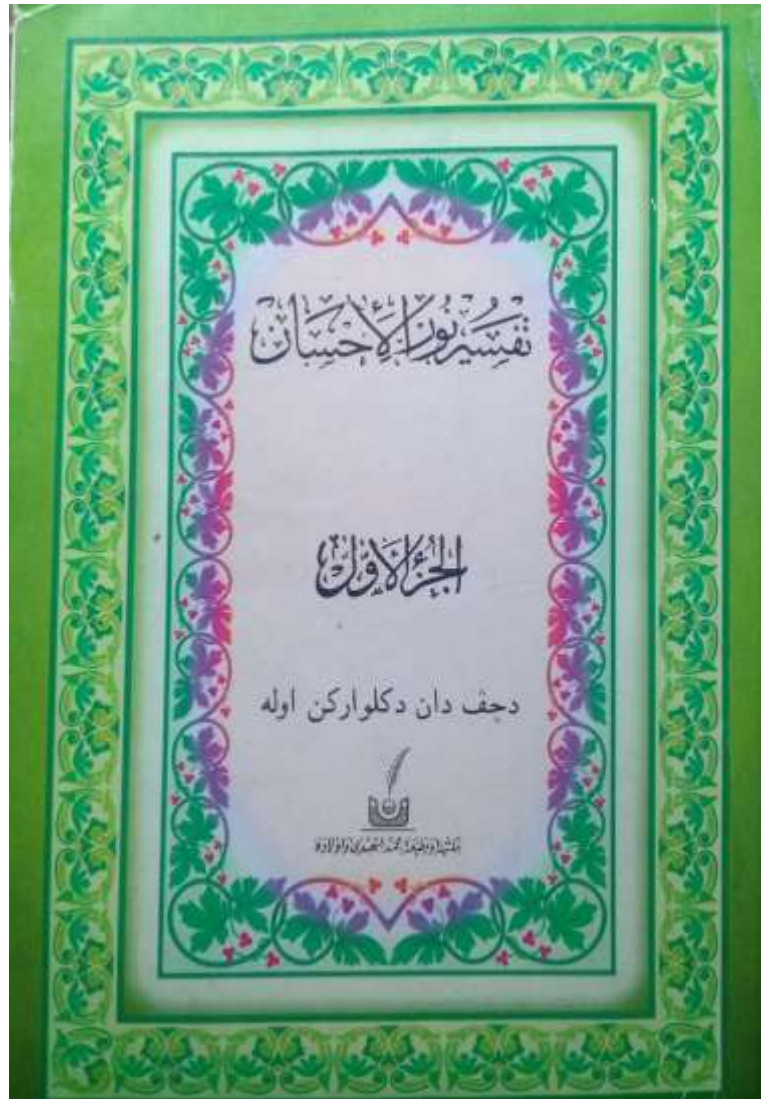 تَفْسِير نُورُ الْإِحْسَان
الجُزْءُ الأَوَّل
دچف دان دكلواركن اوله
مكتبة ومطبعة محمد النهدي وأولاده